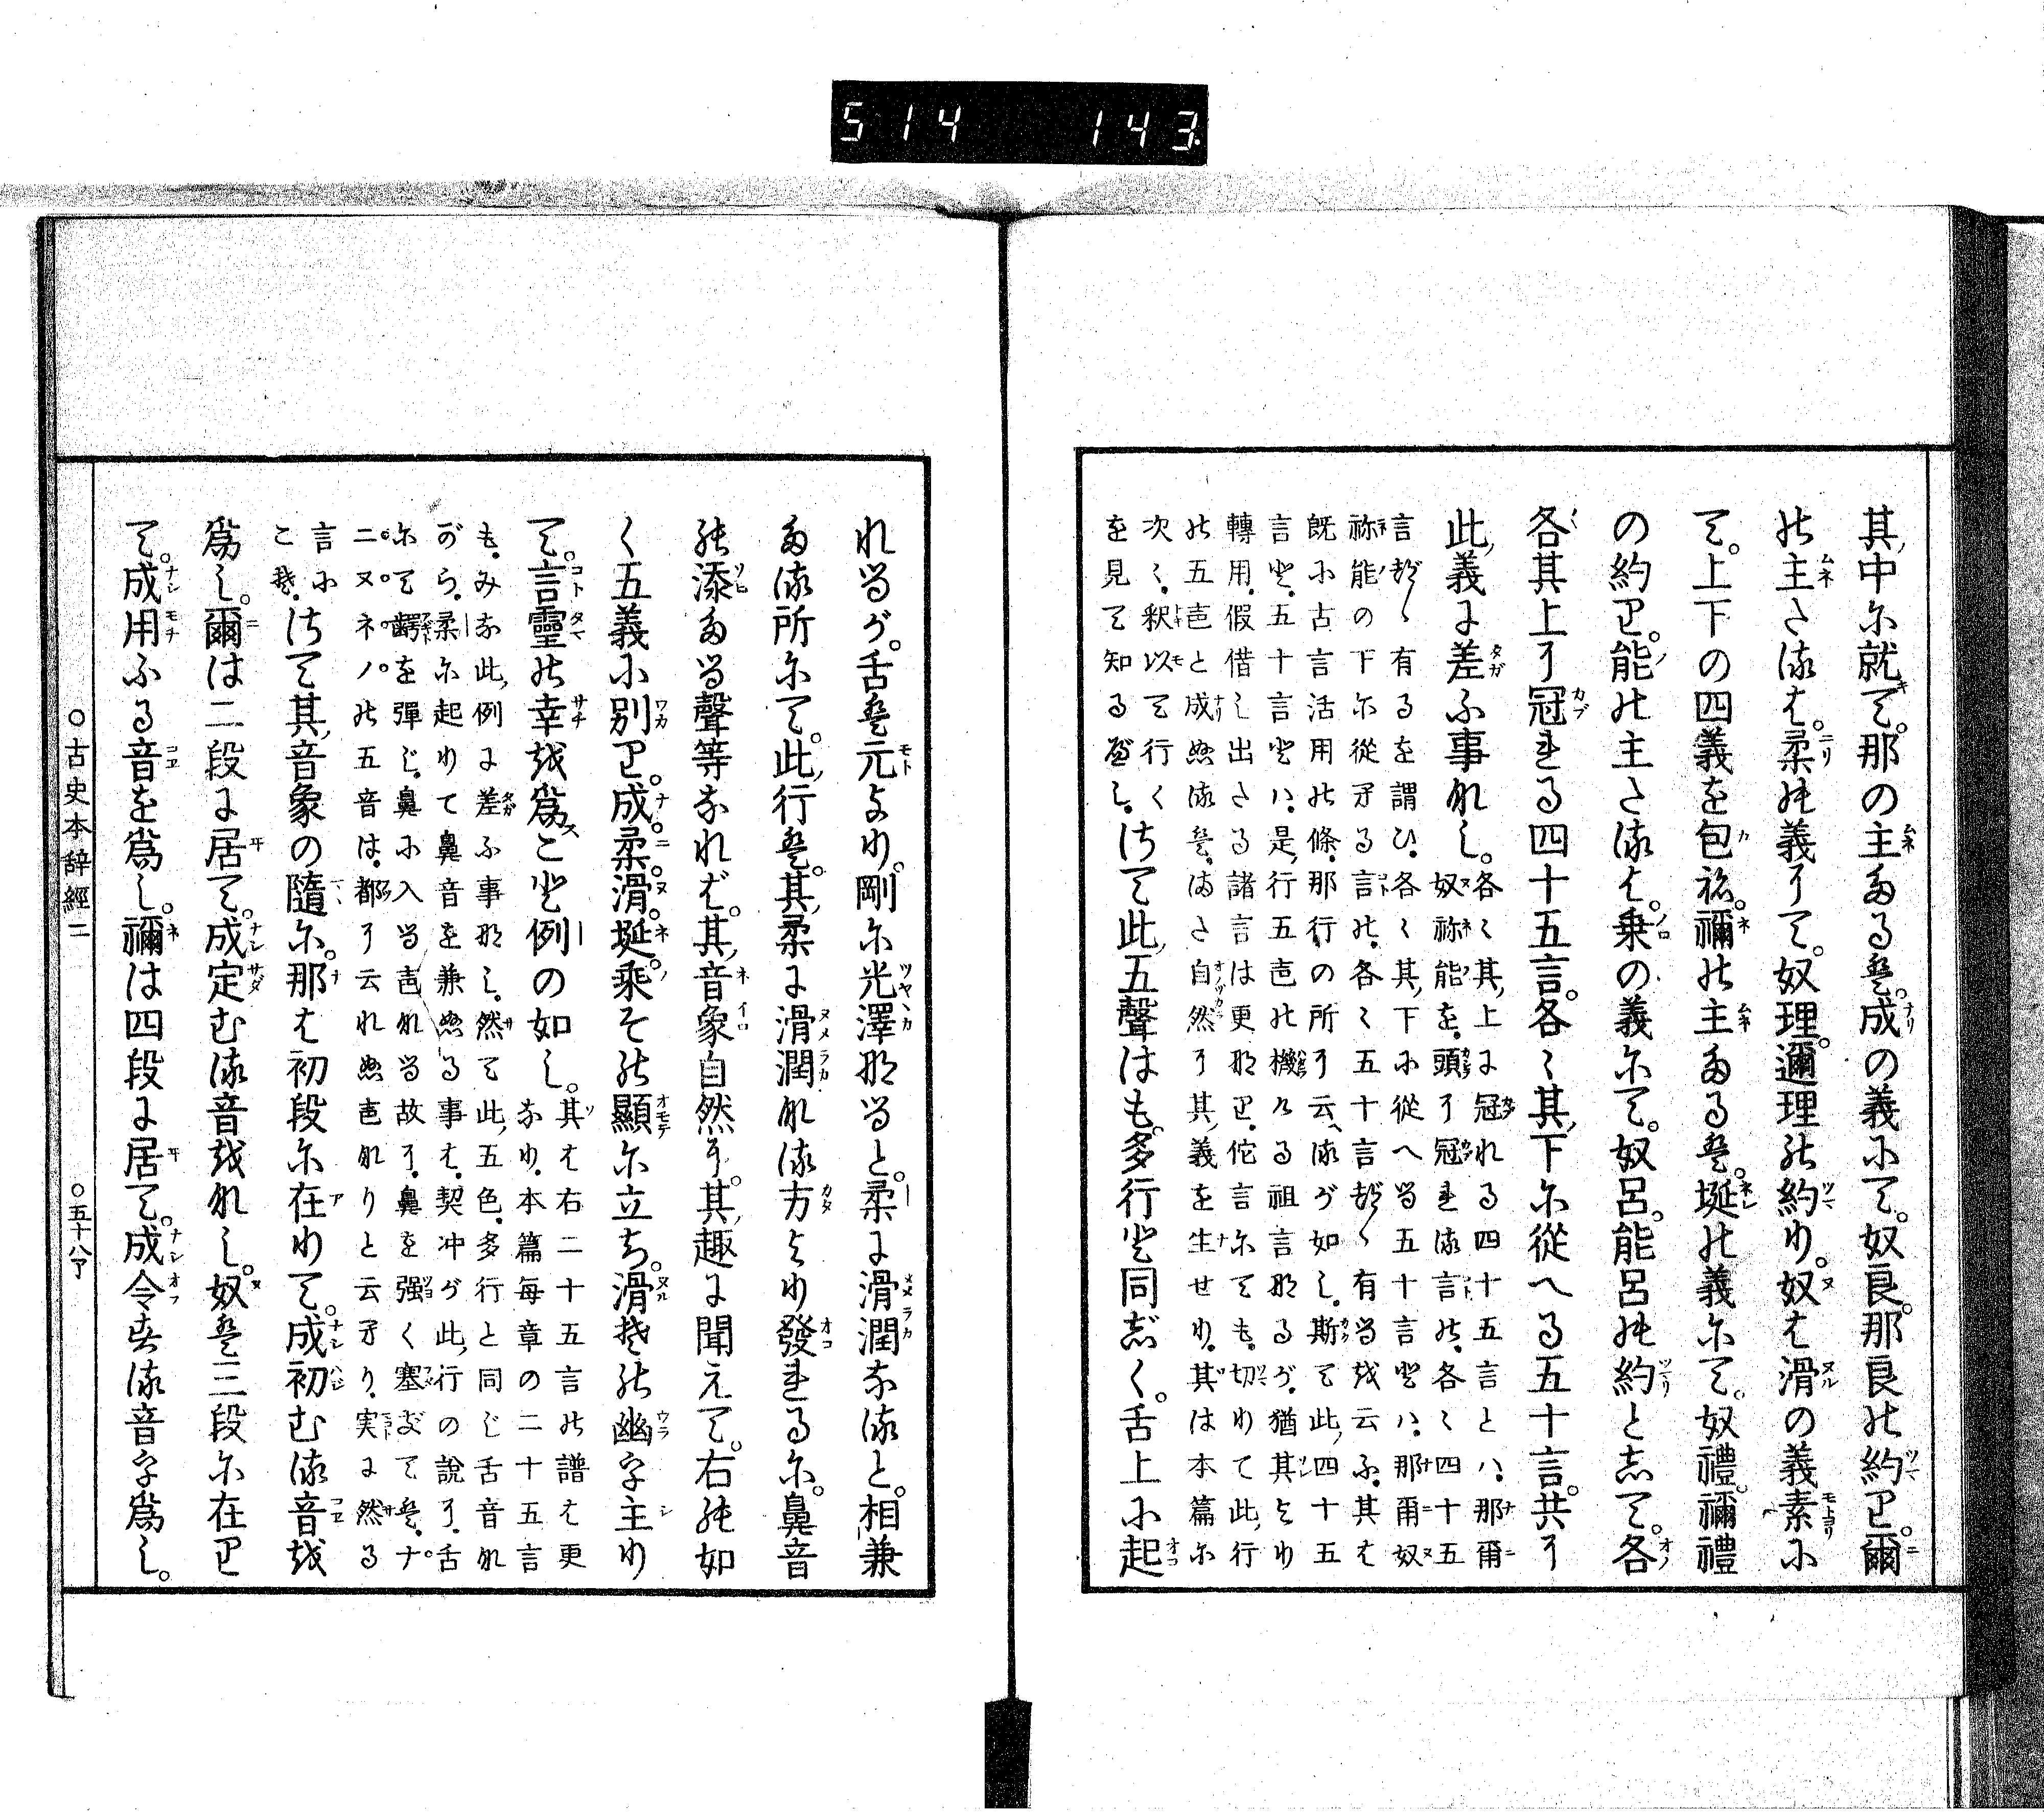 514 143
其中に就て。那の主たるは。成の義にて。奴良。那良の約り。爾
の主たるは。柔の義にて。奴理。邇理の約り。奴は滑の義素に
て。上下の四義を包ね。禰の主たるは。埏の義にて。奴禮。禰禮
の約り。能の主たるは。乗の義にて。奴呂。能呂の約りとして。各
各其上に冠れる四十五言。各〻其下に從へる五十言。共に
此義に差ふ事なし。
各〻其上に冠れる四十五言とハ、那爾
奴祢能を、頭に冠れる言の、各〻四十五
言づゝ有るを謂ひ、各〻其下に從へる五十言とハ、那爾奴
祢能の下に從へる言の、各〻五十言づゝ有るを云ふ、其は
既に古言活用の條、那行の所に云るが如し、斯て此四十五
言と、五十言とハ、是行五音の機なる祖言なるが、猶其より
轉用、假借し出たる諸言は更なり、佗言にても、切りて此行
の五音と成ぬるは、また自然に其義を生せり、其は本篇に
次〻、釈以て行く
を見て知るべし、
さて此五聲はも。多行と同じく。舌上に起
れるが。舌は元より。剛に光澤なると。柔に滑潤なると。相兼
たる所にて。此行は。其柔に滑潤なる方より發れるに。鼻音
の添たる聲等なれば。其音象自然に。其趣に聞えて。右の如
く五義に別り。成。柔。滑。埏。乘その顯に立ち。滑その幽字主り
て。言靈の幸を爲こと例の如し。
其は右二十五言の譜は更
なり、本篇毎章の二十五言
も、みな此例に差ふ事なし、然て此五色、多行と同じ舌音な
がら、柔に起りて鼻音を兼ぬる事は、契冲が此行の說に、舌
にて齶を彈じ、鼻に入る音なる故に、鼻を强く塞ぎては、ナ
ニヌネノの五音は、都に云れぬ音なりと云えり、実に然る
言に
こそ、
さて其音象の隨に。那は初段に在りて。成初むる音を
爲し。爾は二段に居て。成定むる音をなし。奴は三段に在り
て。成用ふる音を爲し。禰は四段に居て。成令する音字爲し。
○古史本辞經二 ○五十八丁